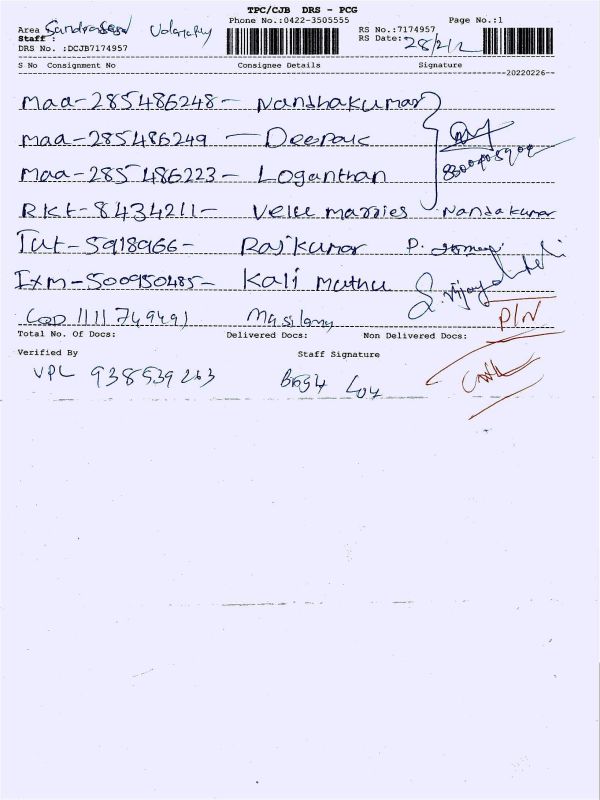 TPC/CJB DRS - PCG
Phone No.:0422-3505555 Page No.:1
Area
RS No.:7174957
Staff :
RS Date: 28/2/2
DRS No. :DCJB7174957
S No Consignment No Consignee Details Signature
20220226
maa-285486248- Nandhakumar
maa-285486249 - Deepak
maa-285486223- Loganthan
RKT-8434211- Velu marries Nandakumar
Tut-5918966- Rajkumar P.
IXM-500950485- Kali Muthu S. Vijayalakshmi
1111749491 Masilamy P/N
Total No. Of Docs: Delivered Docs: Non Delivered Docs:
Verified By Staff Signature
VPL 938539263